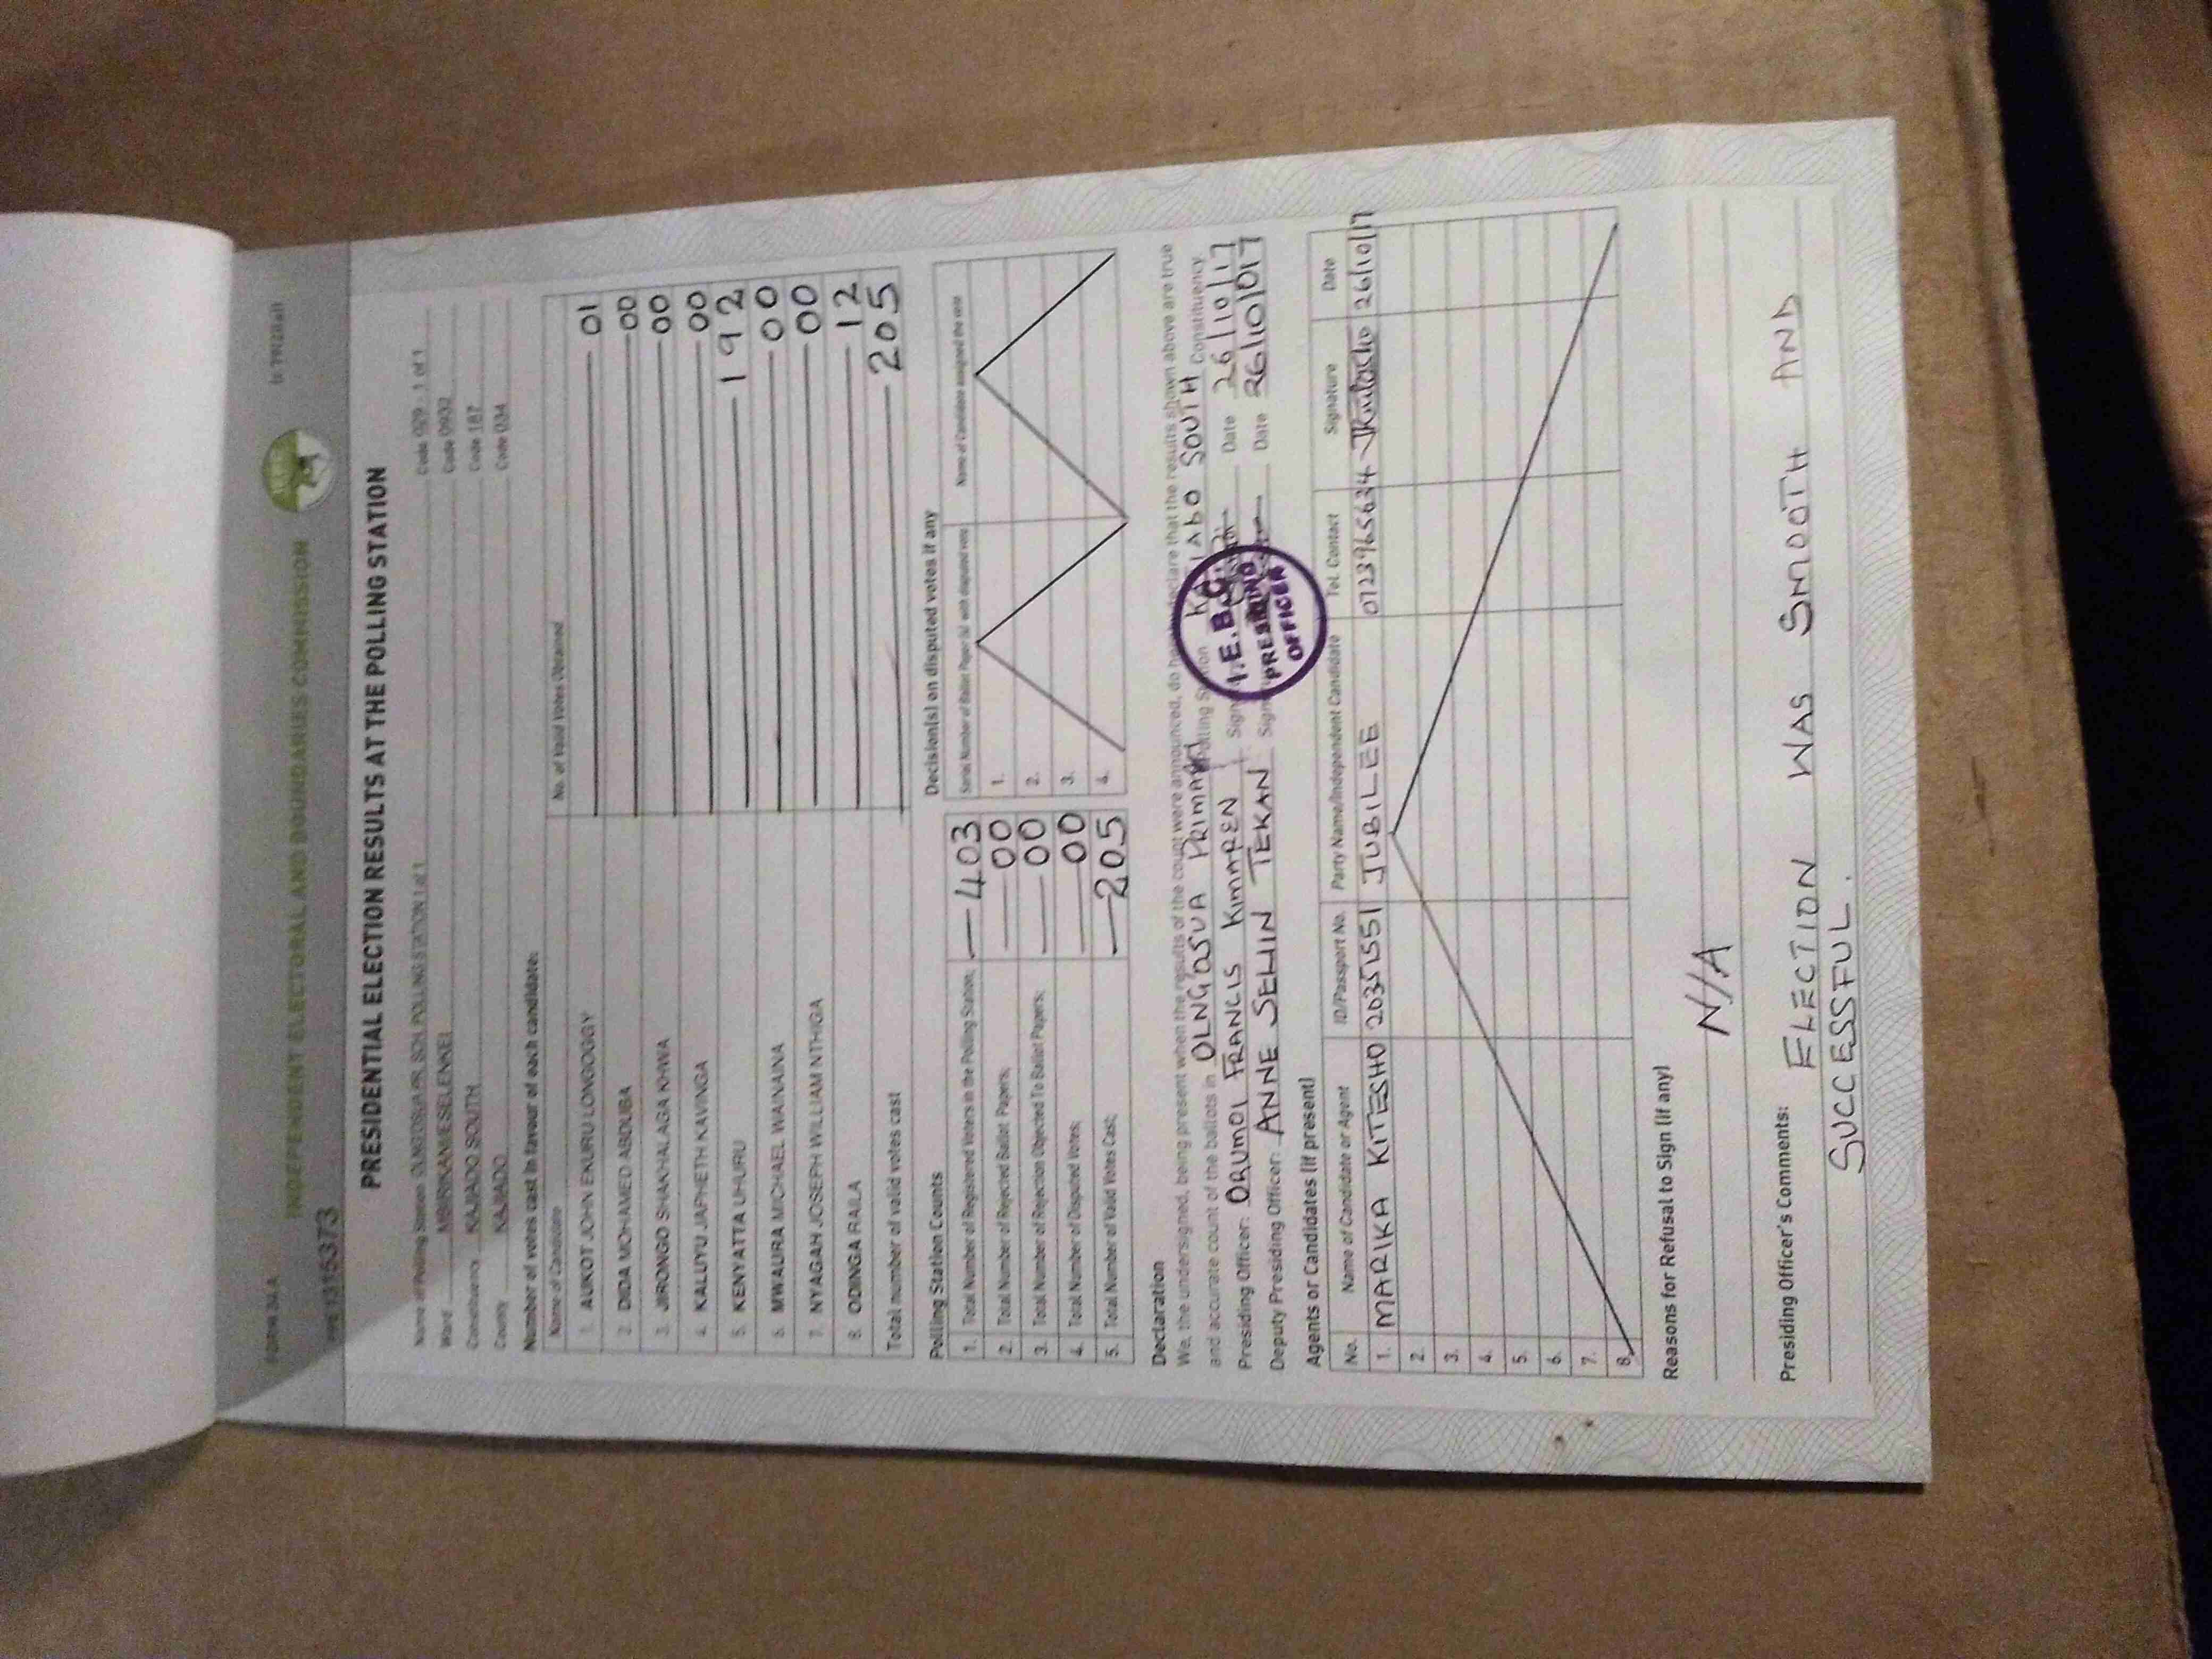 FORM 34A
INDEPENDENT ELECTORAL AND BOUNDARIES COMMISSION
IEBC
PRESIDENTIAL ELECTION RESULTS AT THE POLLING STATION
Name of Polling Station OLNGOSUA PR. SCH. POLLING STATION 1 of 1 Code 029 - 1 of 1
Ward MBIRIKANI/ESELENKEI Code 0932
Constituency KAJIADO SOUTH Code 187
County KAJIADO Code 034
Number of votes cast in favour of each candidate:
Name of Candidate No. of Valid Votes Obtained
1. AUKOT JOHN EKURU LONGOGGY 01
2. DIDA MOHAMED ABDUBA 00
3. JIRONGO SHAKHALAGA KHWA 00
4. KALUYU JAPHETH KAVINGA 00
5. KENYATTA UHURU 192
6. MWAURA MICHAEL WAINAINA 00
7. NYAGAH JOSEPH WILLIAM NTHIGA 00
8. ODINGA RAILA 12
Total number of valid votes cast 205
Polling Station Counts
1. Total Number of Registered Voters in the Polling Station; 403
2. Total Number of Rejected Ballot Papers; 00
3. Total Number of Rejection Objected To Ballot Papers; 00
4. Total Number of Disputed Votes; 00
5. Total Number of Valid Votes Cast; 205
Decision(s) on disputed votes if any
Serial Number of Ballot Paper (s) with disputed vote Name of Candidate assigned the vote
1.
2.
3.
4.
Declaration
We, the undersigned, being present when the results of the count were announced, do declare that the results shown above are true
and accurate count of the ballots in OLNGOSUA PRIMARY Polling Station SOUTH Constituency
Presiding Officer: FRANCIS KIMAREN Date 26/10/17
Deputy Presiding Officer: ANNE TEKAN Date 26/10/017
I.E.B.C.
PRESIDING
OFFICER
Agents or Candidates (if present)
No. Name of Candidate or Agent ID/Passport No. Party Name/Independent Candidate Tel. Contact Signature Date
1. MARIKA KITESHO 20351551 JUBILEE 0723965634 26/10/17
2.
3.
4.
5.
6.
7.
8.
Reasons for Refusal to Sign (if any)
N/A
Presiding Officer's Comments:
ELECTION WAS SMOOTH AND
SUCCESSFUL.